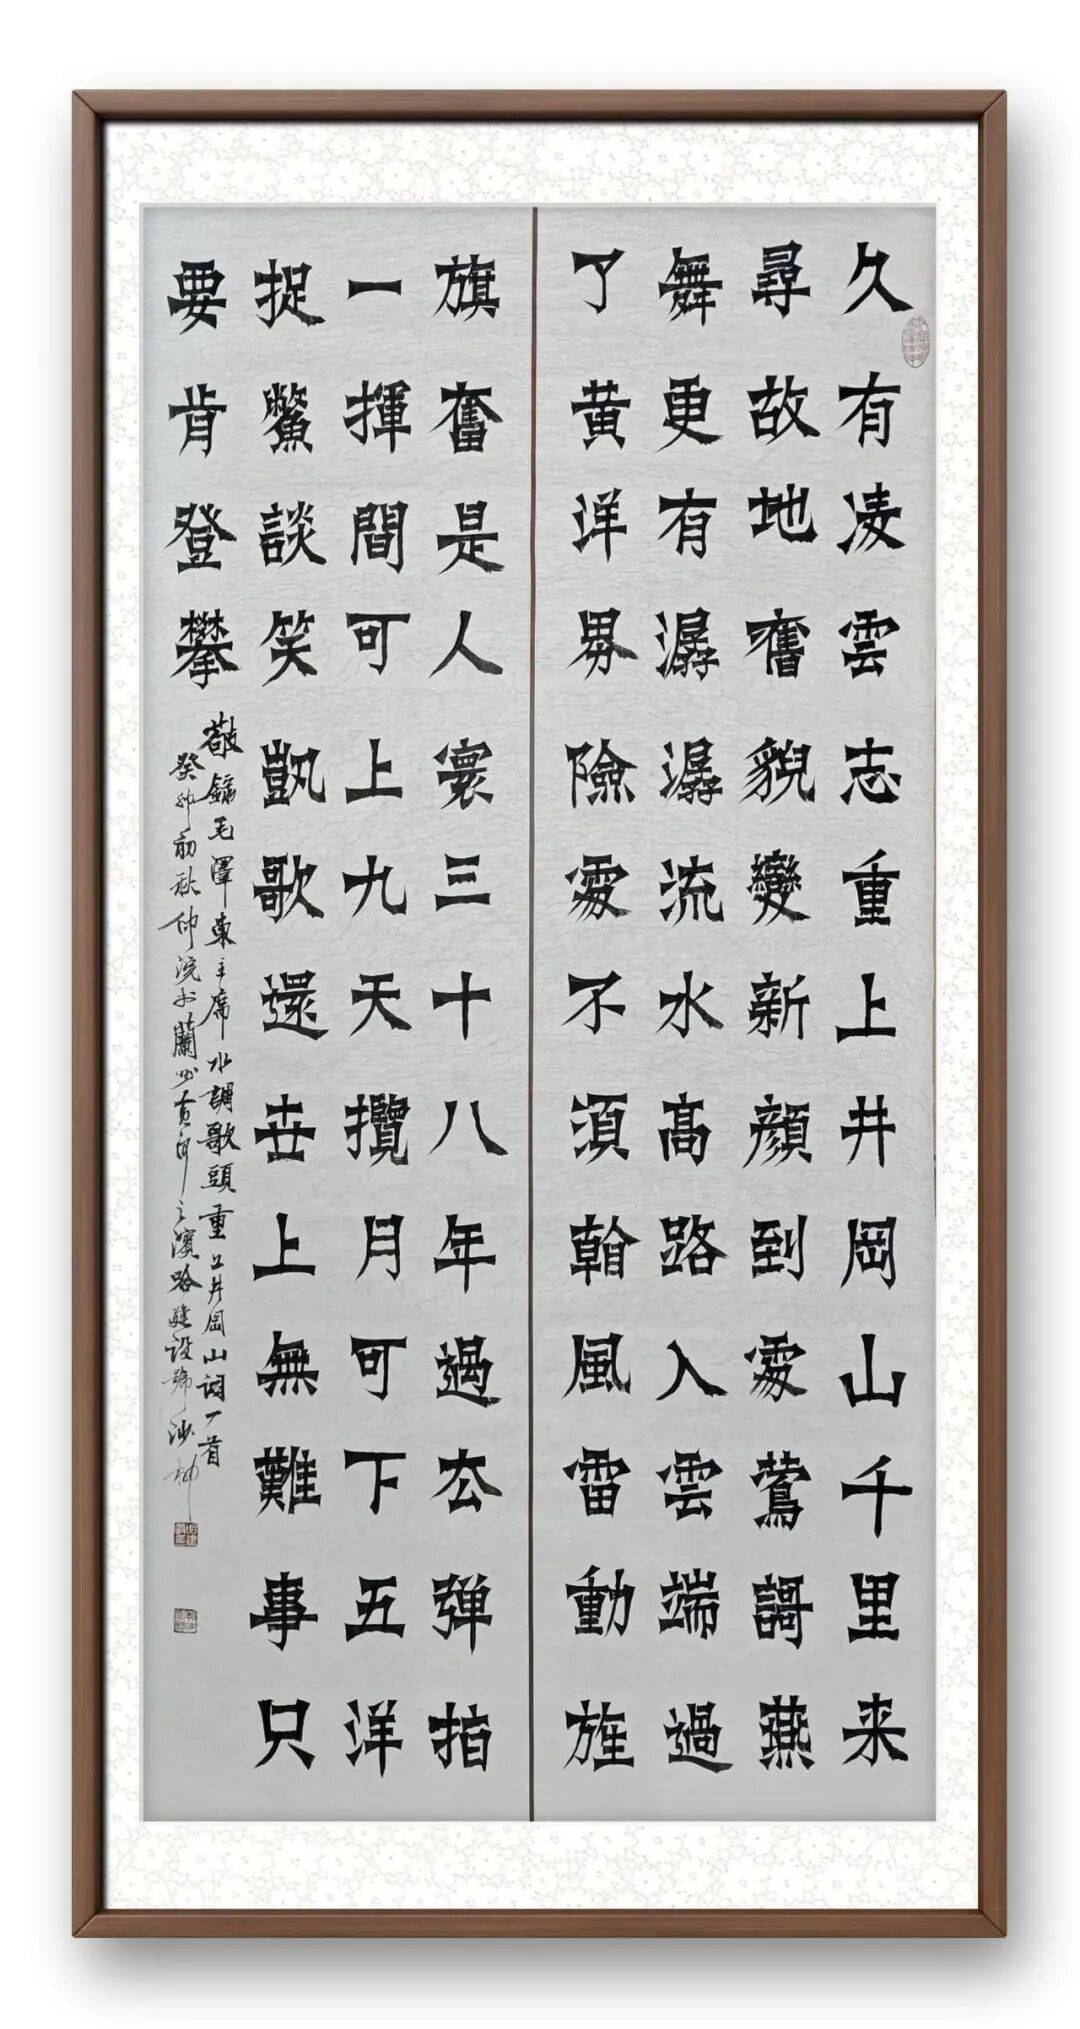 久有凌雲志重上井岡山千里来
尋故地舊貌變新顔到處鶯謌燕
舞更有潺潺流水髙路入雲端過
了黄洋界險處不須看風雷動旌
旗奮是人寰三十八年過去弹指
一揮間可上九天攬月可下五洋
捉鱉談笑凱歌還世上無難事只
要肯登攀
敬錄毛澤東主席水調歌頭重上井岡山詞一首
癸卯初秋仲浣於蘭州黄河之濱